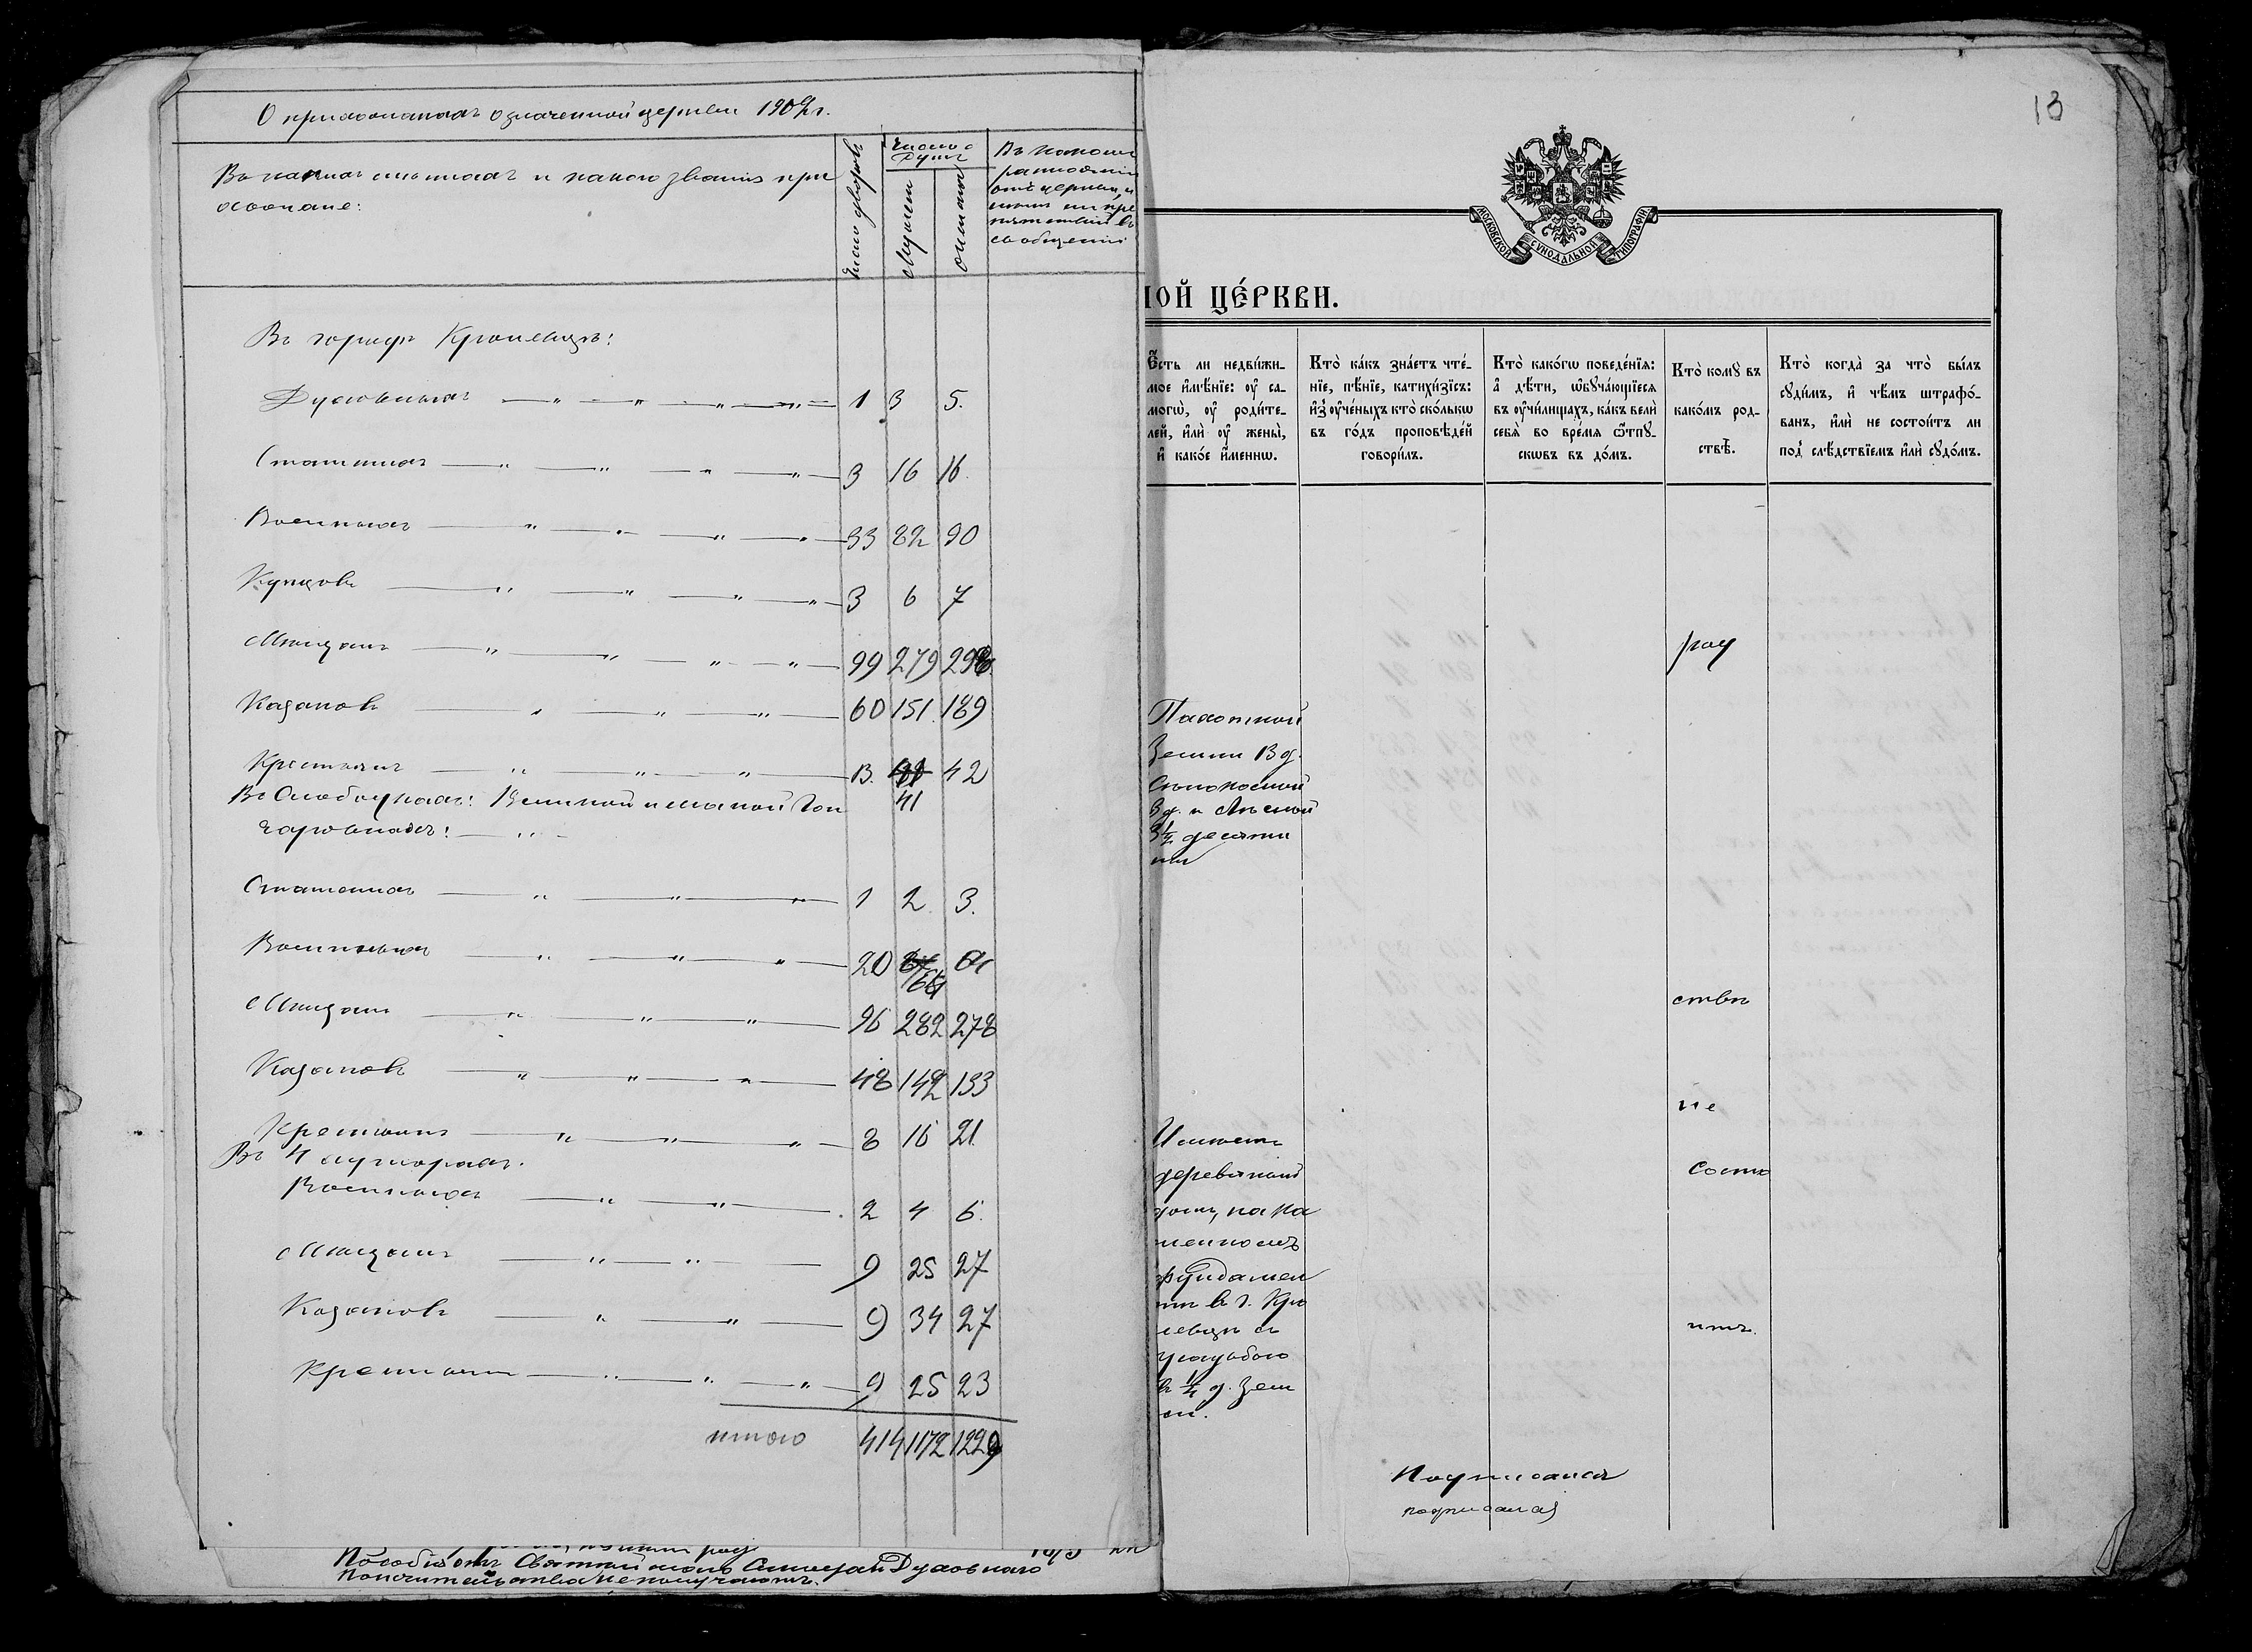 О прихожанахъ означенной церкви 1909 г.
Въ какихъ имѣнно и какого званія при
хожане:
Число дворовъ
Число
Душъ
Мужчин
Женщин
Въ какомъ
разстояніи
отъ церкви, и
нѣтъ ли пре
пятствій въ
сообщеніи
Въ городѣ Кролевцѣ:
Духовныхъ — „ — „ — „ — „ — 1 3 5.
Статскихъ — „ — „ — „ — „ — 3 16 16.
Военныхъ — „ — „ — „ — „ — 33 82 90
Купцовъ — „ — „ — „ — „ — 3 6 7
Мѣщанъ — „ — „ — „ — „ — 99 279
Казаковъ — „ — „ — „ — 60 151. 189
Крестьянъ — „ — „ — „ — 13. 42
41
Въ Слободкахъ: Великой и малой Гон
чаровкахъ: — „ —
Статскихъ — „ — „ — „ — 1 2. 3.
Военныхъ — „ — „ — „ — 20
Мѣщанъ — „ — „ — „ — 96 282 278
Казаковъ — „ — „ — „ — 48 142 133
Крестьянъ — „ — „ — „ — 8 16 21.
Въ 4 хуторахъ.
Военныхъ — „ — „ — 2 4 6.
Мѣщанъ — „ — „ — 9 25 27
Казаковъ — „ — „ — 9 34 27
Крестьянъ — „ — „ — „ — 9 25 23
итого 414 1172 1229
Пособія отъ Епархіальнаго Духовнаго
Попечительства не получаютъ.
13
МОСКОВСКОЙ СѴНОДАЛЬНОЙ ТИПОГРАФІИ
НОЙ ЦЕ́РКВИ.
Е҆́сть ли недви́жи-
мое и҆мѣ́нїе: ѹ҆ са-
могѡ̀, ѹ҆ роди́те-
лей, и҆лѝ ѹ҆ жены̀,
и҆ како́е и҆́меннѡ.
Кто̀ ка́къ зна́етъ чте́-
нїе, пѣ́нїе, катихи́зїсъ:
и҆з̾ ѹ҆че́ныхъ кто̀ ско́лькѡ
въ го́дъ проповѣ́дей
говори́лъ.
Кто̀ како́гѡ поведе́нїѧ:
а҆ дѣ́ти, ѡ҆бꙋча́ющїесѧ
въ ѹ҆чи́лищахъ, ка́къ велѝ
себѧ̀ во вре́мѧ ѿпꙋ-
скѡвъ въ до́мъ.
Кто̀ комꙋ̀ въ
како́мъ род-
ствѣ̀.
Кто̀ когда̀ за что̀ бы́лъ
сꙋди́мъ, и҆ чѣ́мъ штрафо́-
ванъ, и҆лѝ не состои́тъ ли
под̾ слѣ́дствїемъ и҆лѝ сꙋдо́мъ.
род
Пахотной
Земли 13 д.
Сѣнокосной
3 д. и Лѣсной
3½ десяти
ны
ствѣ
не
Имѣетъ
деревянный
домъ, на ка
менномъ
фундамен
тѣ въ г. Кро
левцѣ съ
усадьбою
въ ¼ д. зем
ли.
состо
итъ.
Подписался
подписался